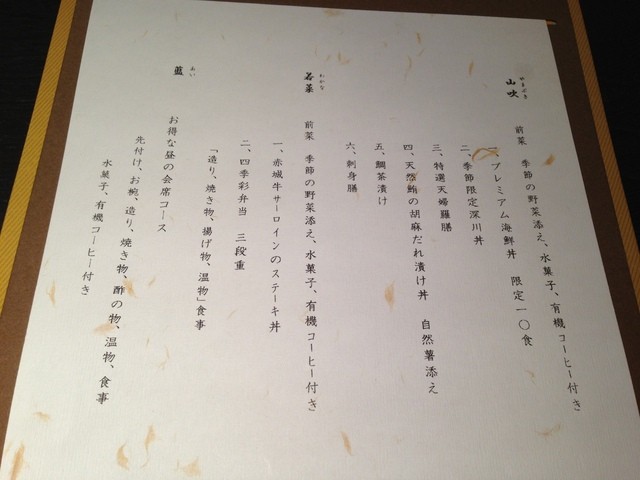 やまぶき
山吹
前菜 季節の野菜添え、水菓子、有機コーヒー付き
一、プレミアム海鮮丼 限定一〇食
二、季節限定深川丼
三、特選天婦羅膳
四、天然鮪の胡麻だれ漬け丼 自然薯添え
五、鯛茶漬け
六、刺身膳
わかな
若菜
前菜 季節の野菜添え、水菓子、有機コーヒー付き
一、赤城牛サーロインのステーキ丼
二、四季彩弁当 三段重
「造り、焼き物、揚げ物、温物」食事
あい
藍
お得な昼の会席コース
先付け、お椀、造り、焼き物、酢の物、温物、食事
水菓子、有機コーヒー付き